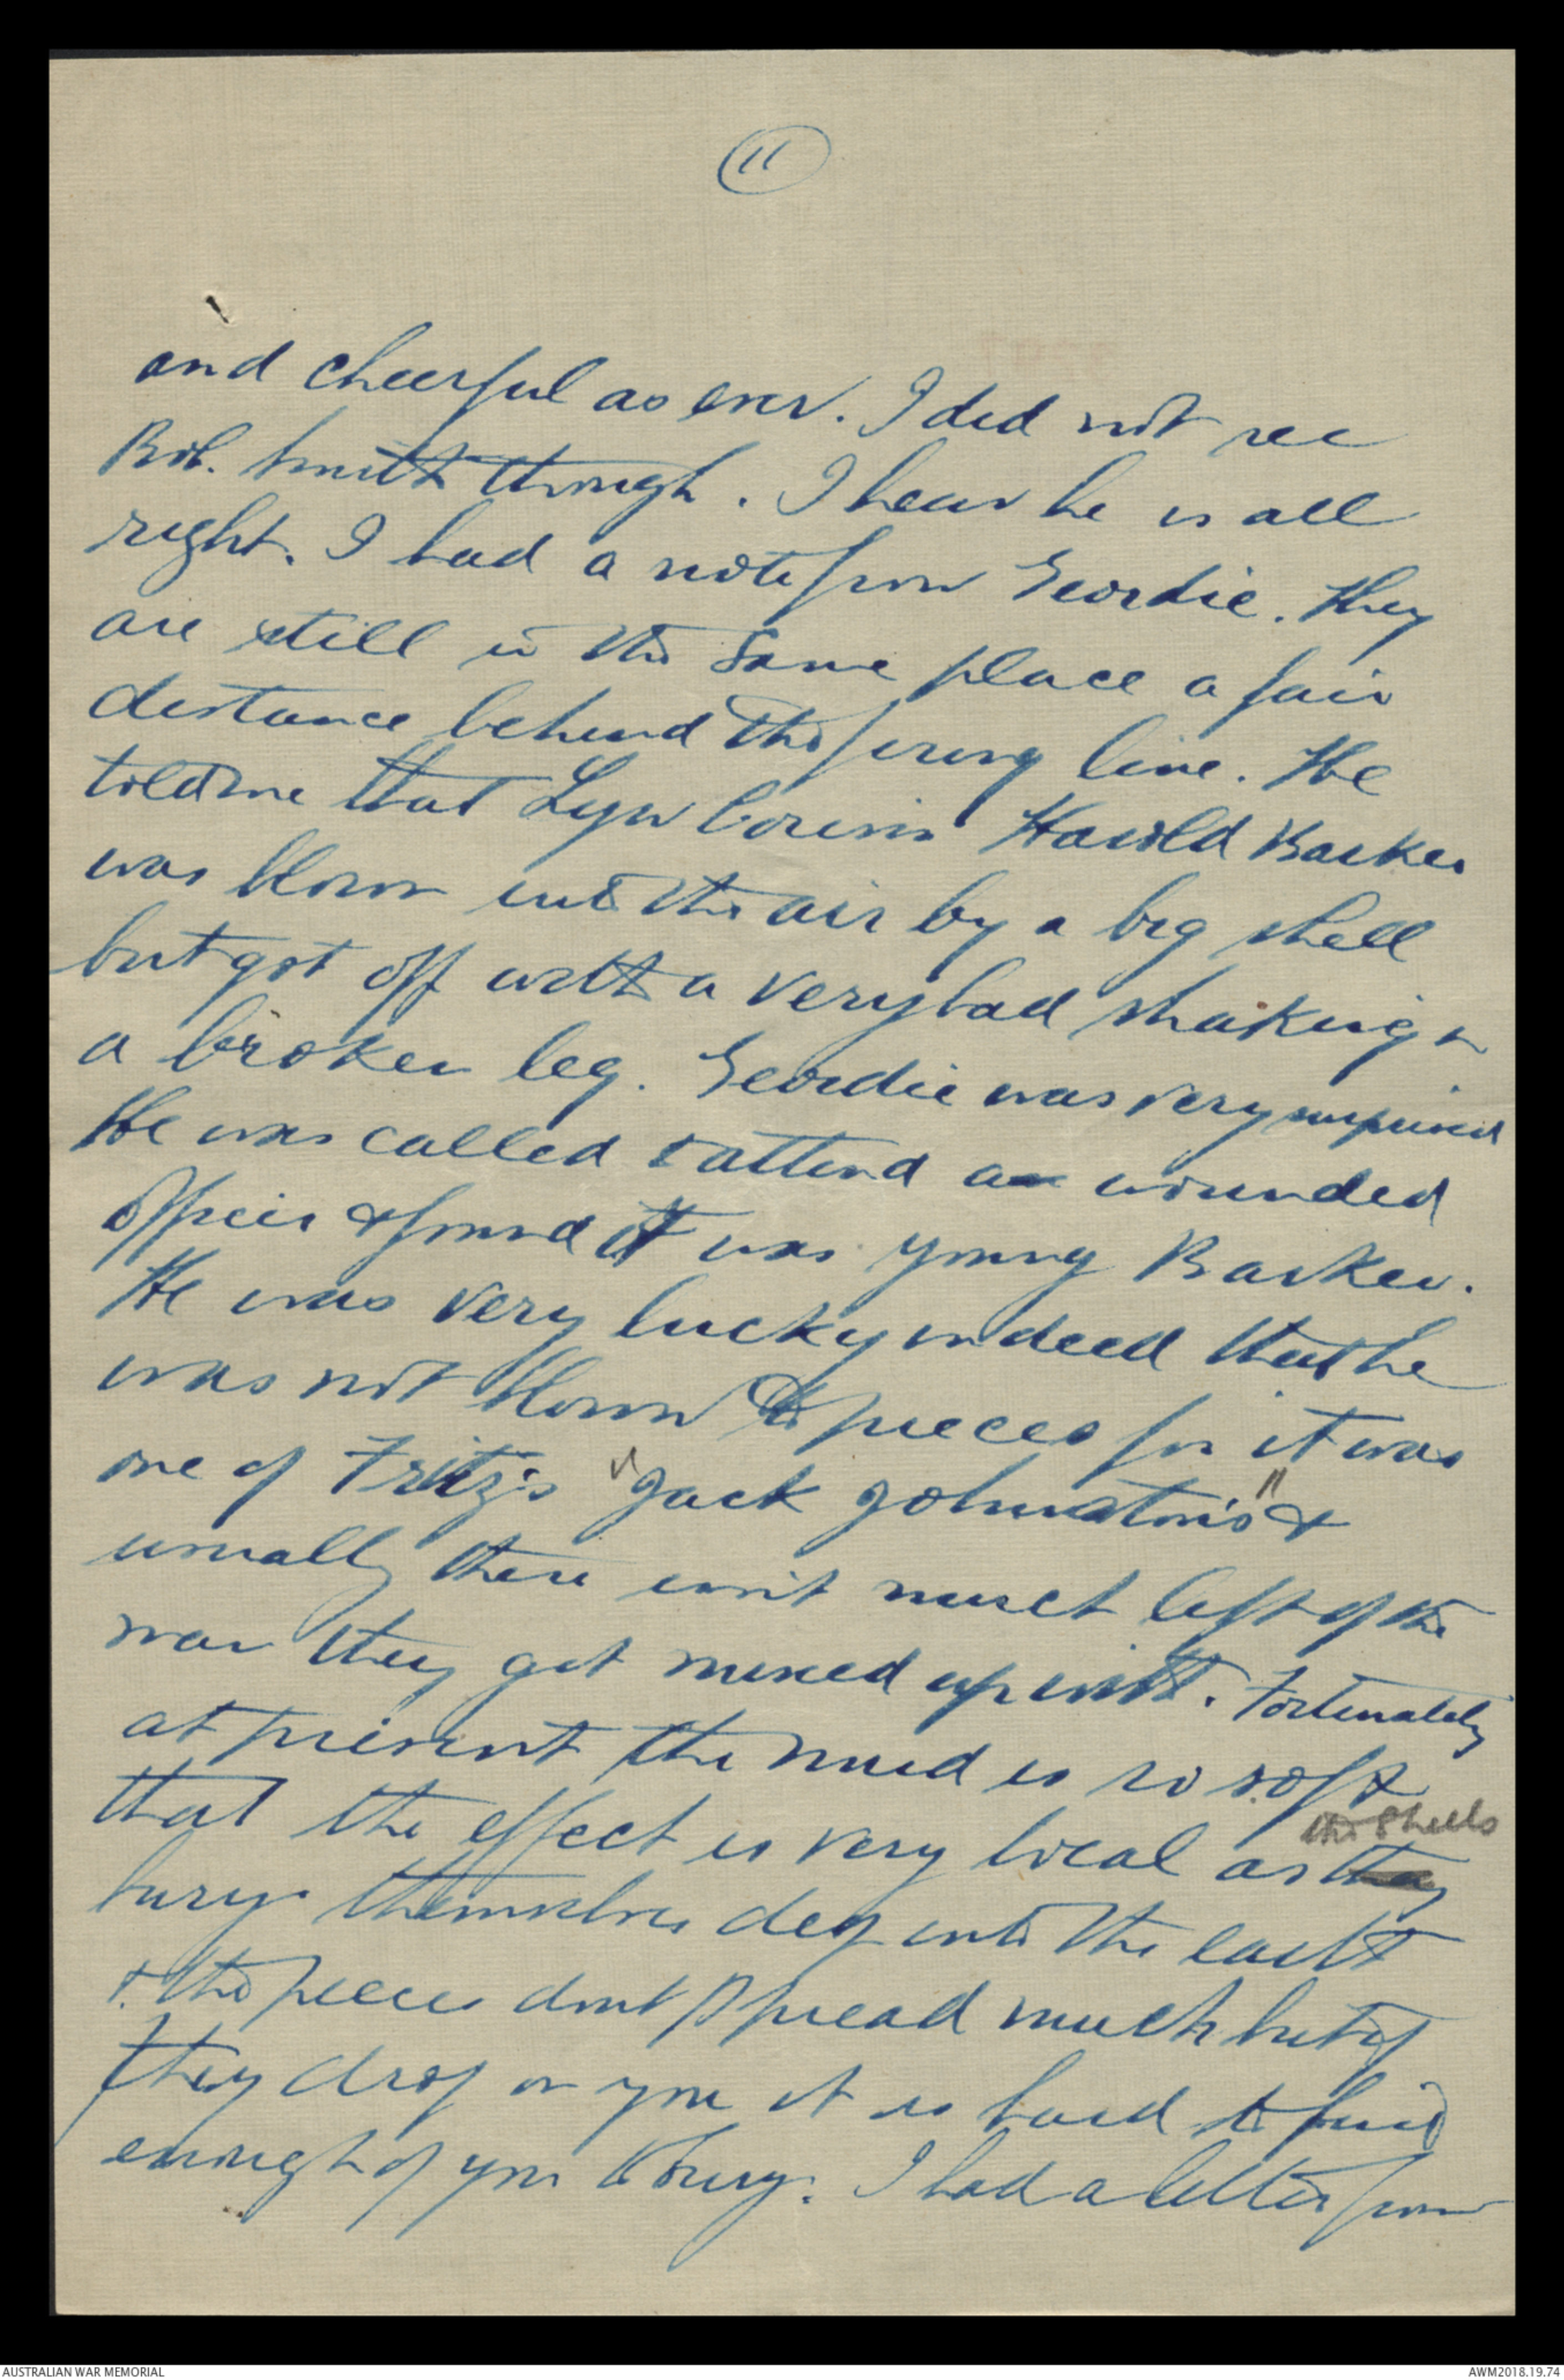 11
and cheerful as ever. I did not see
Bob. Smith though. I hear he is all
right. I had a note from Geordie. They
are still in the same place a fair
distance behind the firing line. He
told me that Lyn Cousins Harold Barker
was blown into the air by a big shell
but got off with a very bad shaking &
a broken leg. Geordie was very surprised
He was called to attend a wounded
officer & found it was young Barker.
He was very lucky indeed that he
was not blown to pieces for it was
one of Fritz's "Jack Johnston's" &
usually there isn't much left of the
man they get mixed up with. Fortunately
at present the mud is so soft
the shells
that the effect is very local as they
bury themselves deep into the earth
& the pieces dont spread much but if
they drop on you it is hard to find
enough of you to bury. I had a letter from
AUSTRALIAN WAR MEMORIAL
AWM2018.19.74